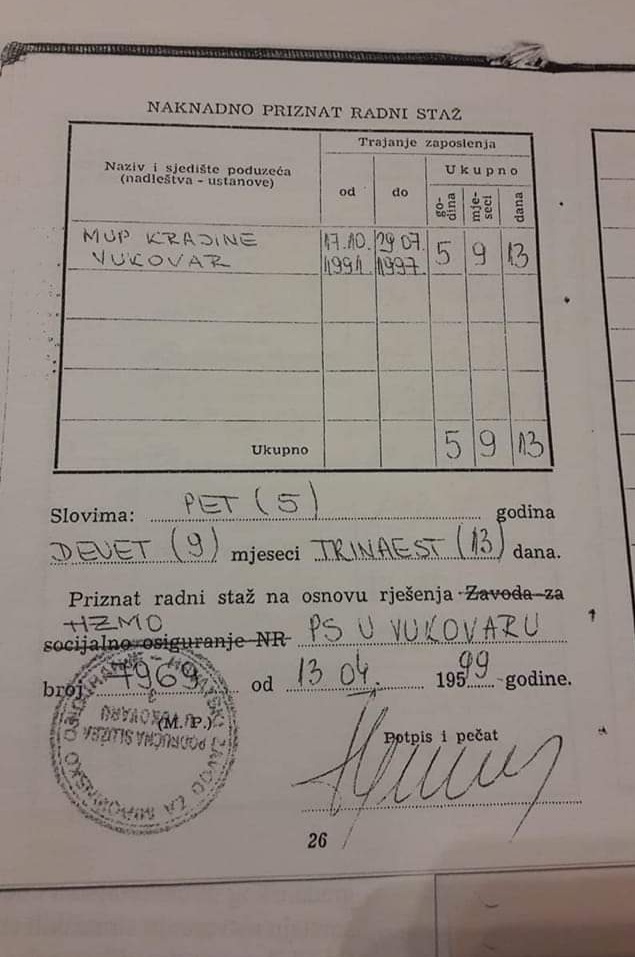 NAKNADNO PRIZNAT RADNI STAŽ
Naziv i sjedište poduzeća
(nadleštva - ustanove)
Trajanje zaposlenja
od
do
Ukupno
go-
dina
mje-
seci
dana
MUP KRAJINE
VUKOVAR
17.10.
1991.
29 07.
1997.
5 9 13
Ukupno 5 9 13
Slovima: PET (5) godina
DEVET (9) mjeseci TRINAEST (13) dana.
Priznat radni staž na osnovu rješenja Zavoda za
HZMO
socijalno osiguranje NR PS U VUKOVARU
broj 7969 od 13 04. 195 99 godine.
(M. P.)
Potpis i pečat
HRVATSKI ZAVOD ZA MIROVINSKO OSIGURANJE
PODRUČNA SLUŽBA
U VUKOVARU
3
26